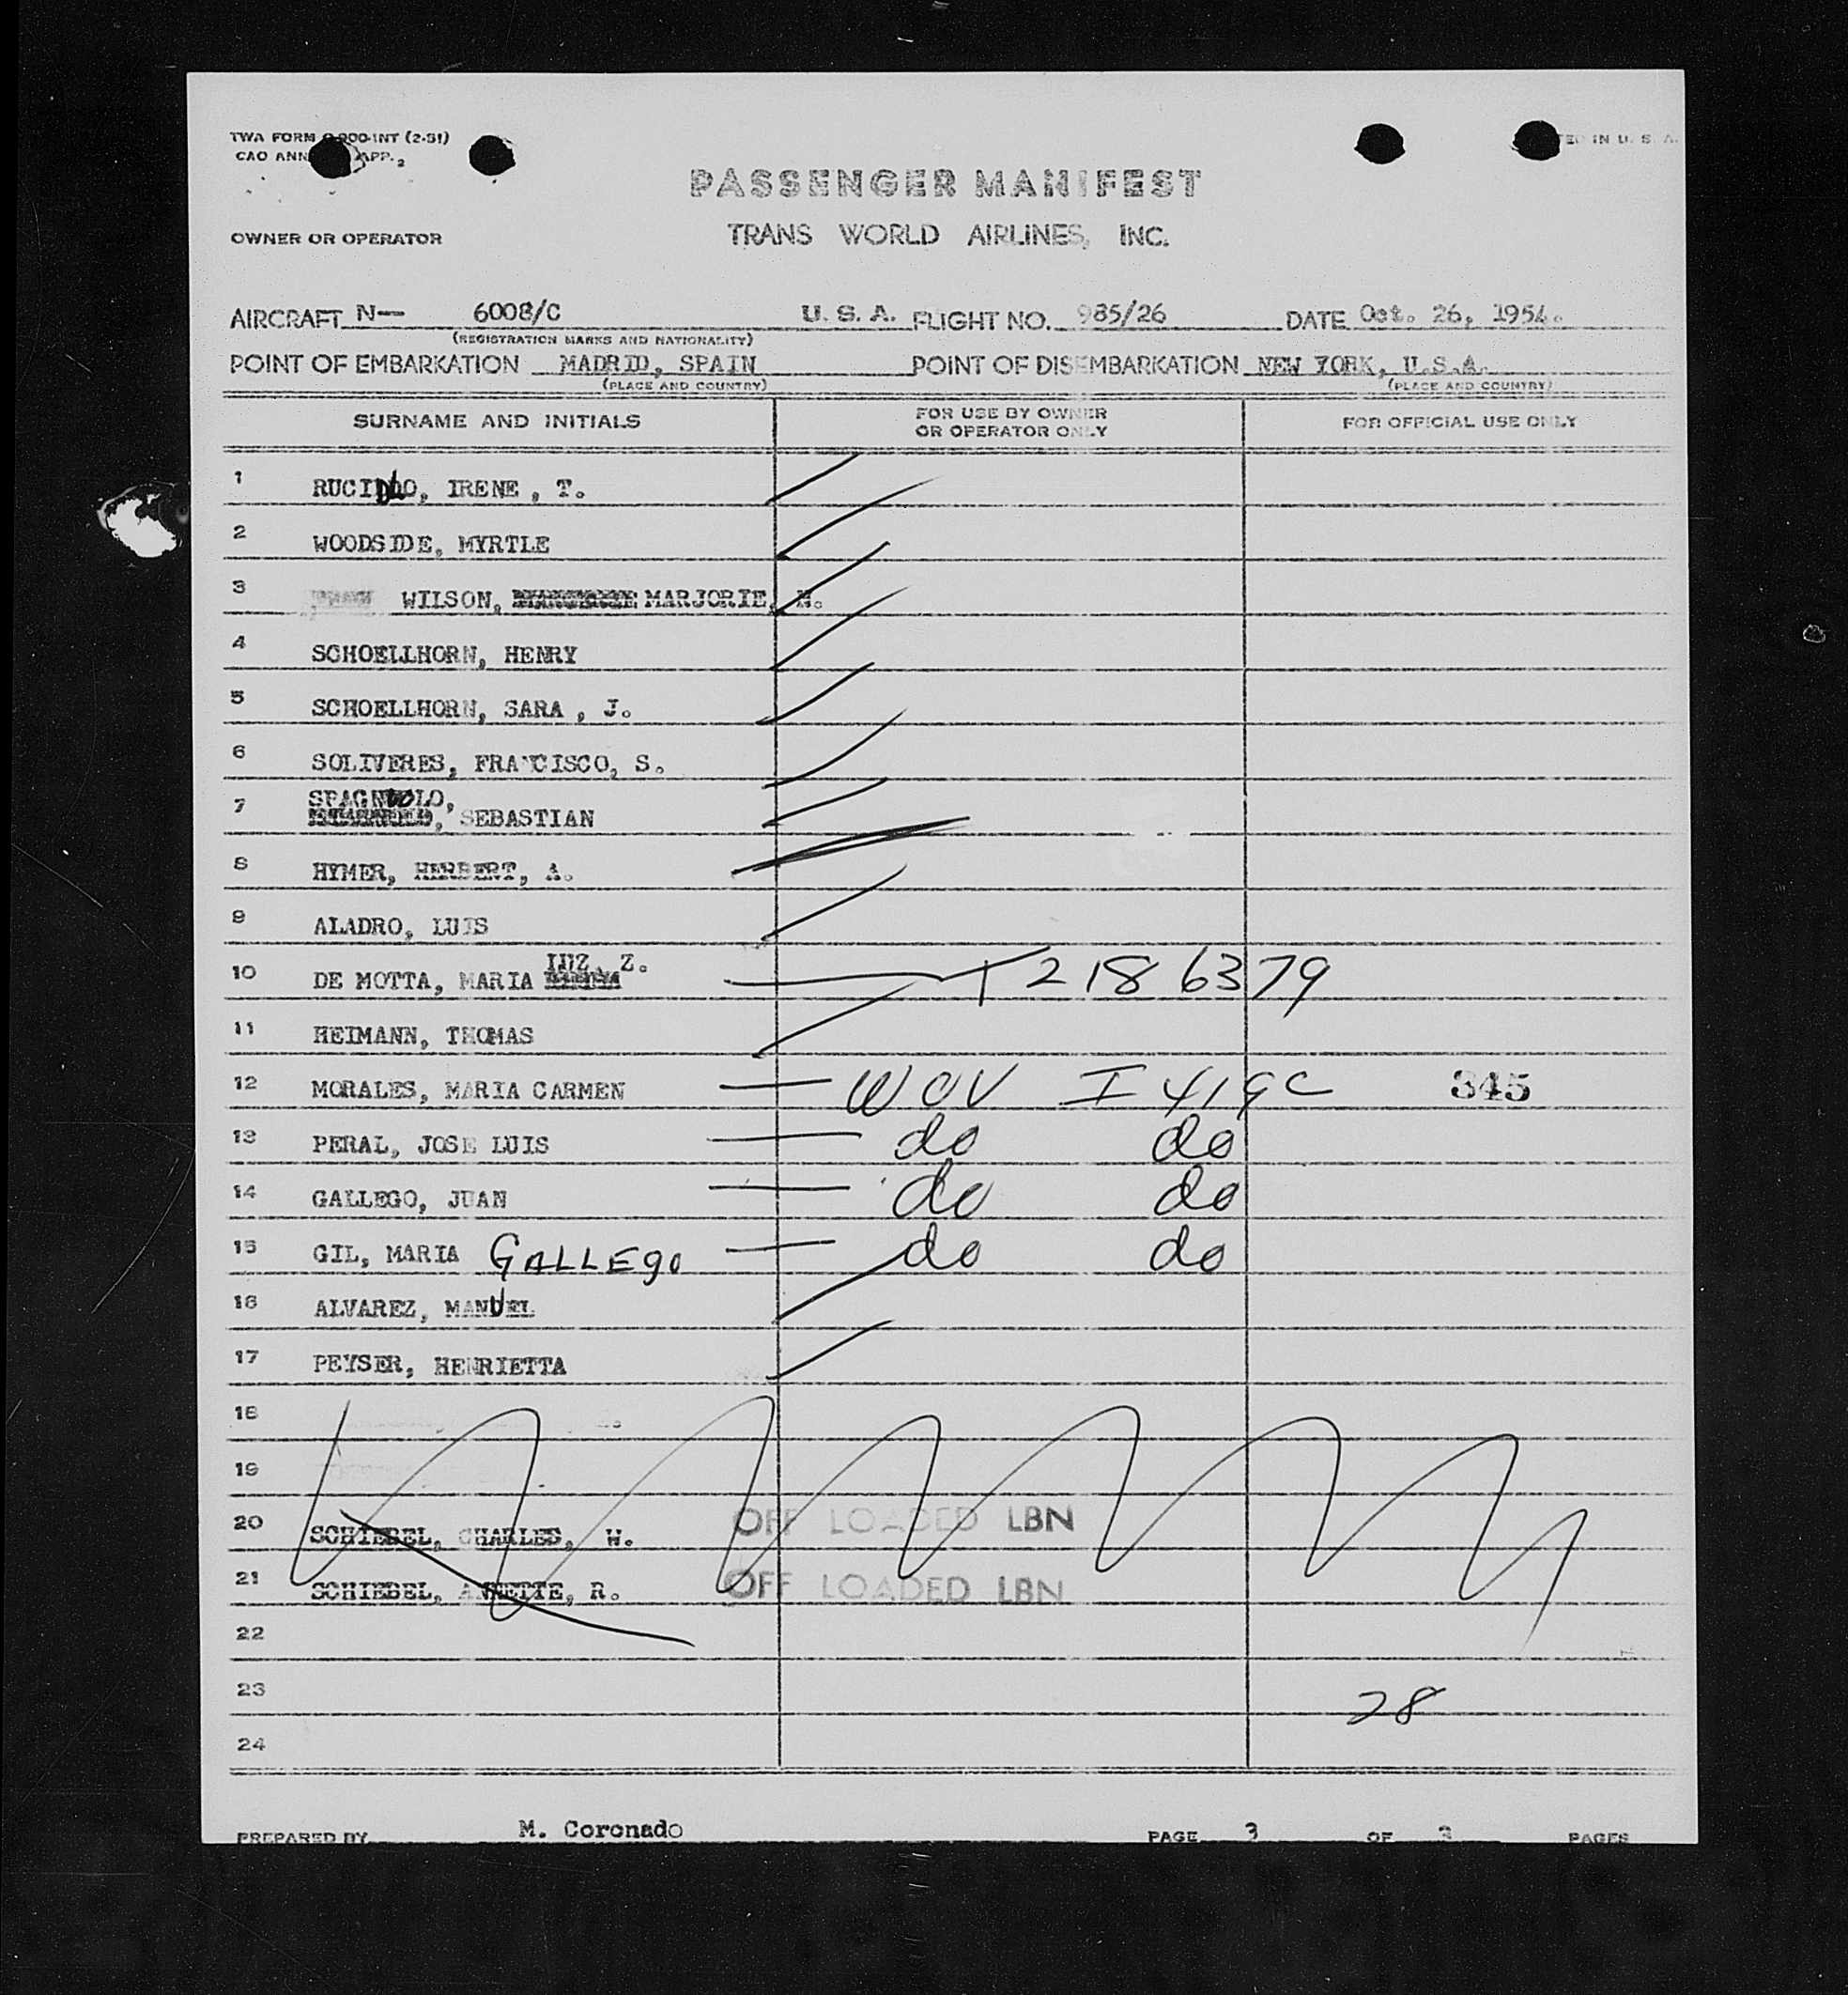 TWA FORM INT (2-51)
CAO ANN APP. 2
IN U. S. A.
PASSENGER MANIFEST
OWNER OR OPERATOR TRANS WORLD AIRLINES, INC.
AIRCRAFT N— 6008/C U. S. A. FLIGHT NO. 985/26 DATE Oct. 26, 1954.
(REGISTRATION MARKS AND NATIONALITY)
POINT OF EMBARKATION MADRID, SPAIN POINT OF DISEMBARKATION NEW YORK, U.S.A.
(PLACE AND COUNTRY) (PLACE AND COUNTRY)
SURNAME AND INITIALS FOR USE BY OWNER OR OPERATOR ONLY FOR OFFICIAL USE ONLY
1 IRENE , T.
2 WOODSIDE, MYRTLE
3 WILSON, MARJORIE,
4 SCHOELLHORN, HENRY
5 SCHOELLHORN, SARA , J.
6 SOLIVERES, FRANCISCO, S.
7 SPAGNUOLO, SEBASTIAN
8 HYMER, HERBERT, A.
9 ALADRO, LUIS
10 DE MOTTA, MARIA LUZ, Z. T 2186379
11 HEIMANN, THOMAS
12 MORALES, MARIA CARMEN WOV I 419C 345
13 PERAL, JOSE LUIS do do
14 GALLEGO, JUAN do do
15 GIL, MARIA GALLEGO do do
16 ALVAREZ, MANUEL
17 PEYSER, HENRIETTA
18
19
20 SCHIEBEL, CHARLES, W. OFF LOADED LBN
21 SCHIEBEL, ANNETTE, R. OFF LOADED LBN
22
23 28
24
PREPARED BY M. Coronado PAGE 3 OF 3 PAGES